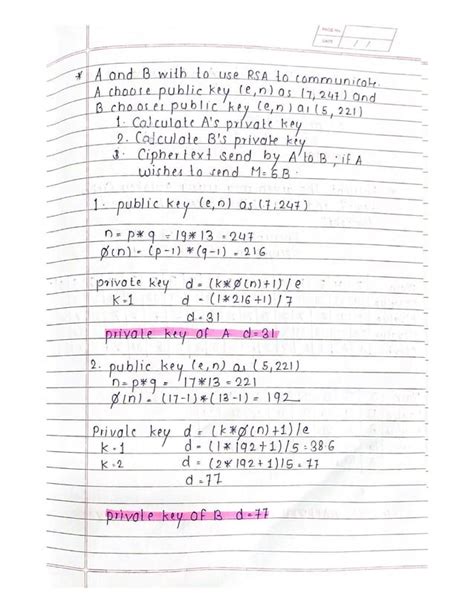 PAGE No.
DATE / /
* A and B with to use RSA to communicate.
A choose public key (e,n) as (7,247) and
B chooses public key (e,n) as (5,221)
1. Calculate A's private key
2. Calculate B's private key
3. Ciphertext send by A to B ; if A
wishes to send M=5 B.
1. public key (e,n) as (7,247)
n = p*q = 19*13 = 247
Ø(n) = (p-1)*(q-1) = 216
private key d = (k*Ø(n)+1)/e
K=1 d = (1*216+1)/7
d=31
private key of A d=31
2. public key (e,n) as (5,221)
n = p*q = 17*13 = 221
Ø(n) = (17-1)*(13-1) = 192
Private key d = (k*Ø(n)+1)/e
K=1 d = (1*192+1)/5 = 38.6
K=2 d = (2*192+1)/5 = 77
d=77
private key of B d=77